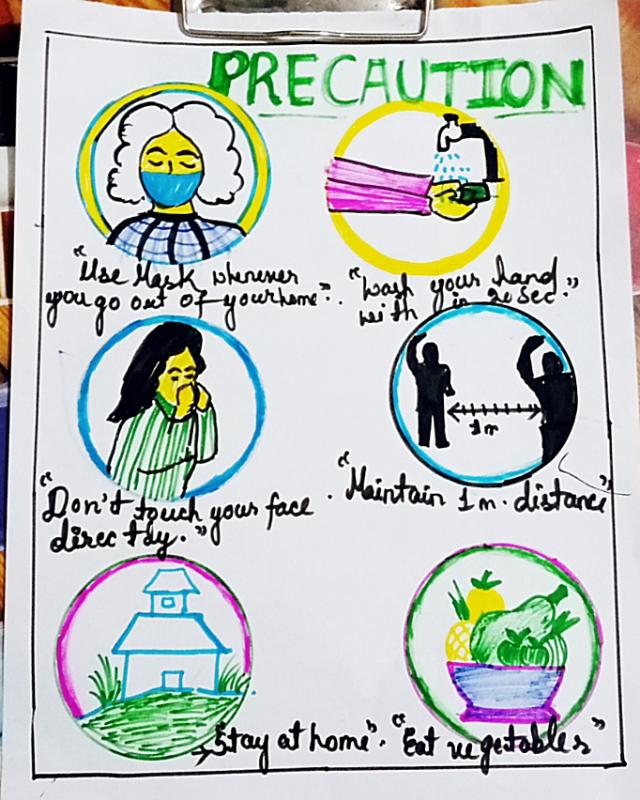 PRECAUTION
"Use Mask whenever
you go out of your home".
"Wash your hand
with in 20 sec."
1m
"Don't touch your face
directly."
"Maintain 1m. distance"
Stay at home".
"Eat vegetables"